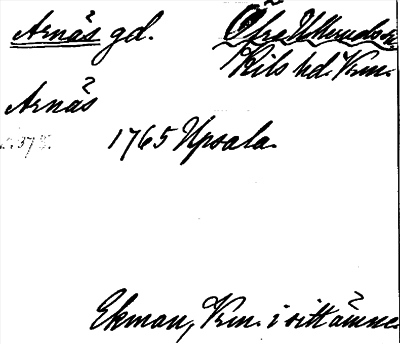 Arnäs gd. Öfre Ulleruds sn
Kils hd. Vrm.
Arnäs
1765 Upsala.
Ekman, Vrm. i sitt ämne.